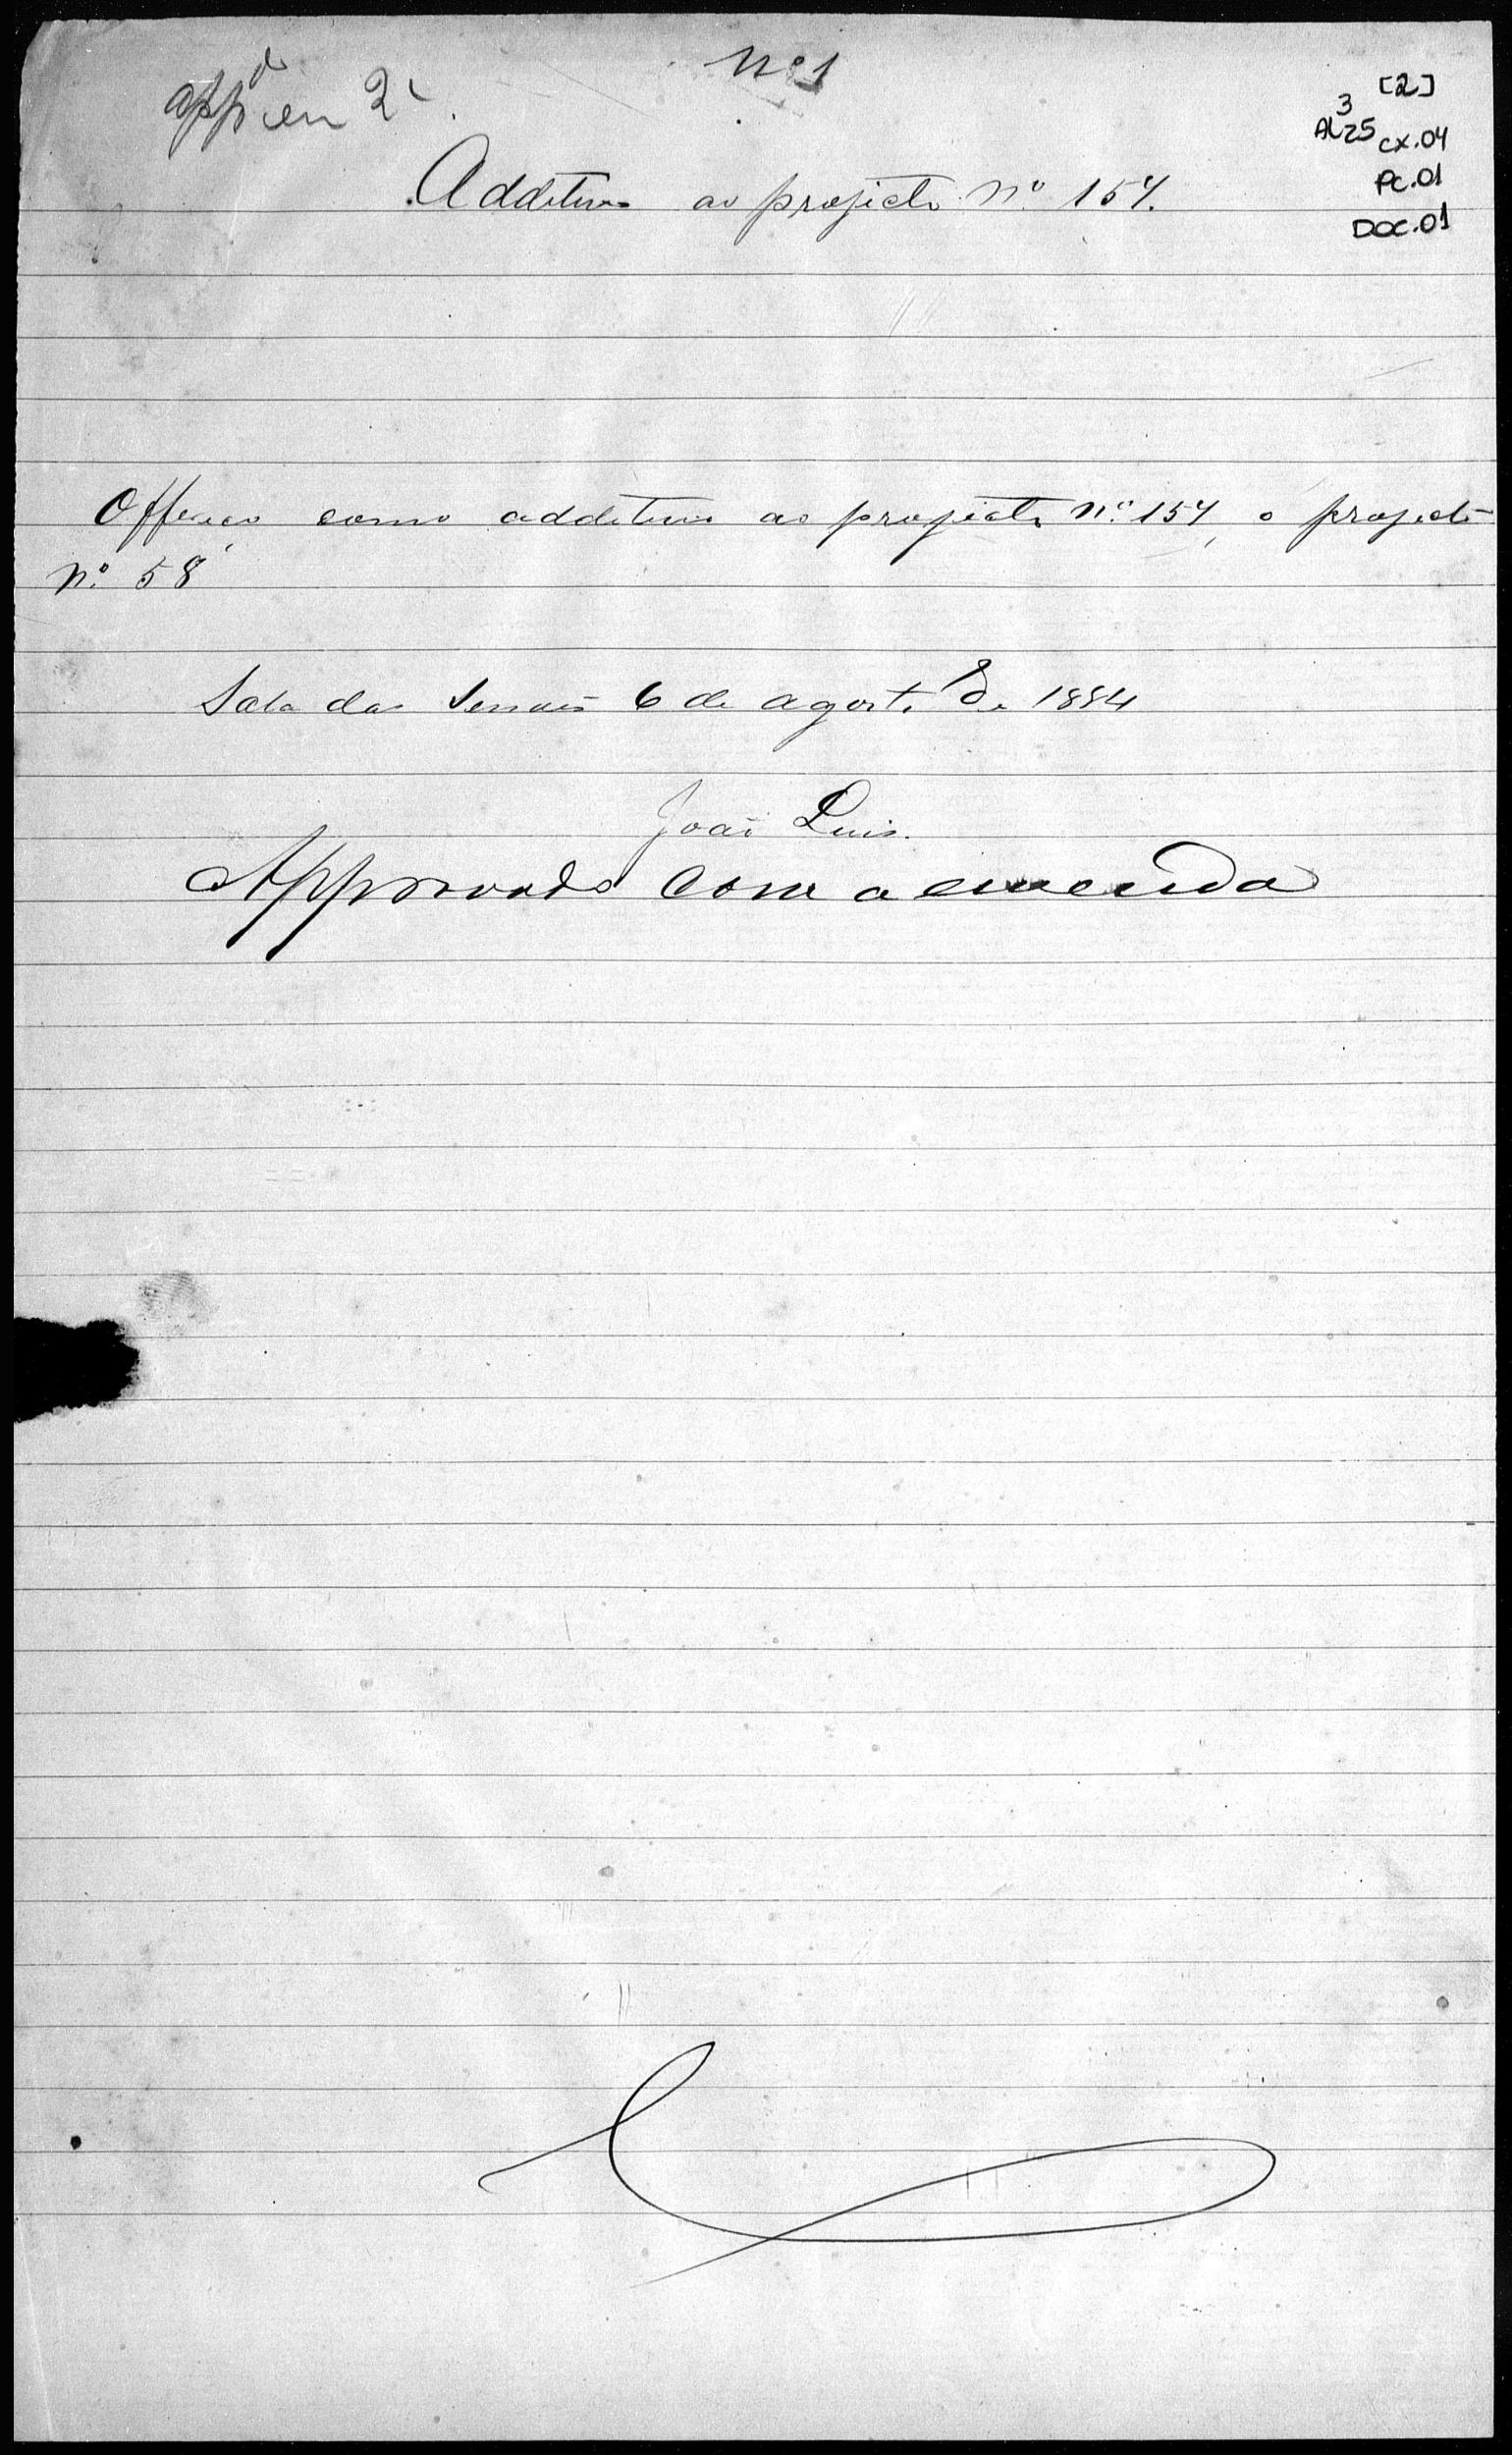 Nº 1
appdo em 2ª
[2]
AL 3 25 CX.04
PC.01
DOC.01
Additivo ao projecto Nº 154.
Offereço como additivo ao projecto Nº 154, o projecto
Nº 58
Sala das Sessões 6 de agosto de 1884
João Luis.
Approvado com a emenda